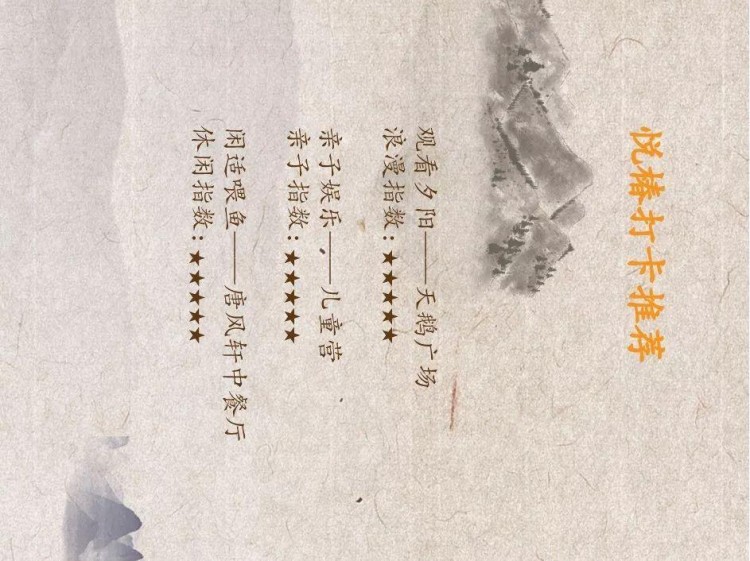 悦椿打卡推荐
观看夕阳——天鹅广场
浪漫指数:★★★★★
亲子娱乐——儿童营
亲子指数:★★★★★
闲适喂鱼——唐风轩中餐厅
休闲指数:★★★★★